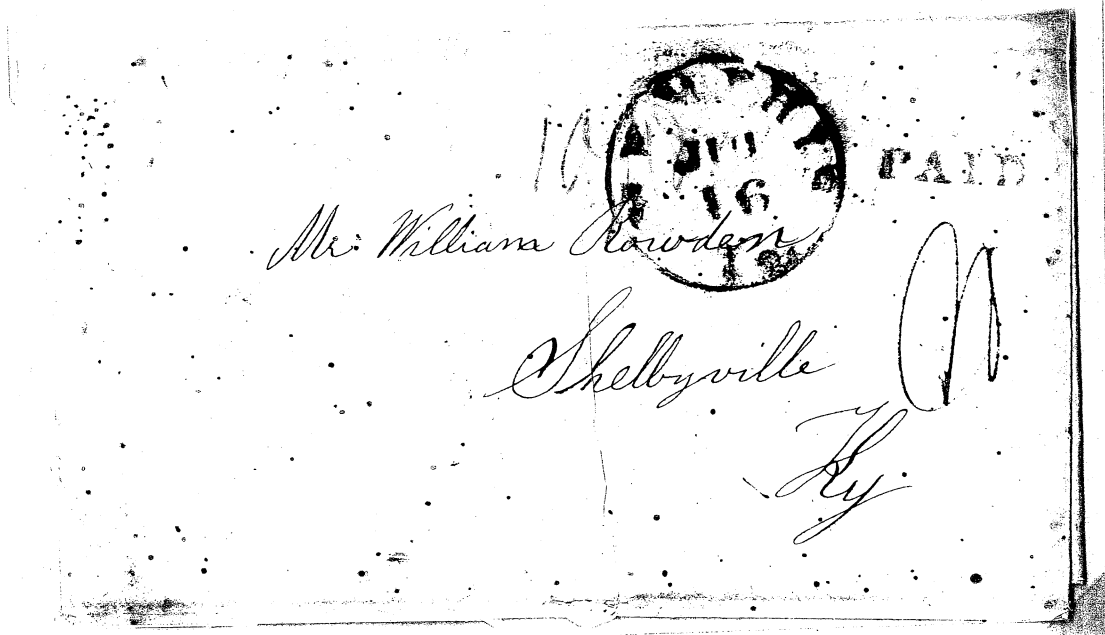 10
PAID
16
Mr. William Rowden
Shelbyville
Ky.